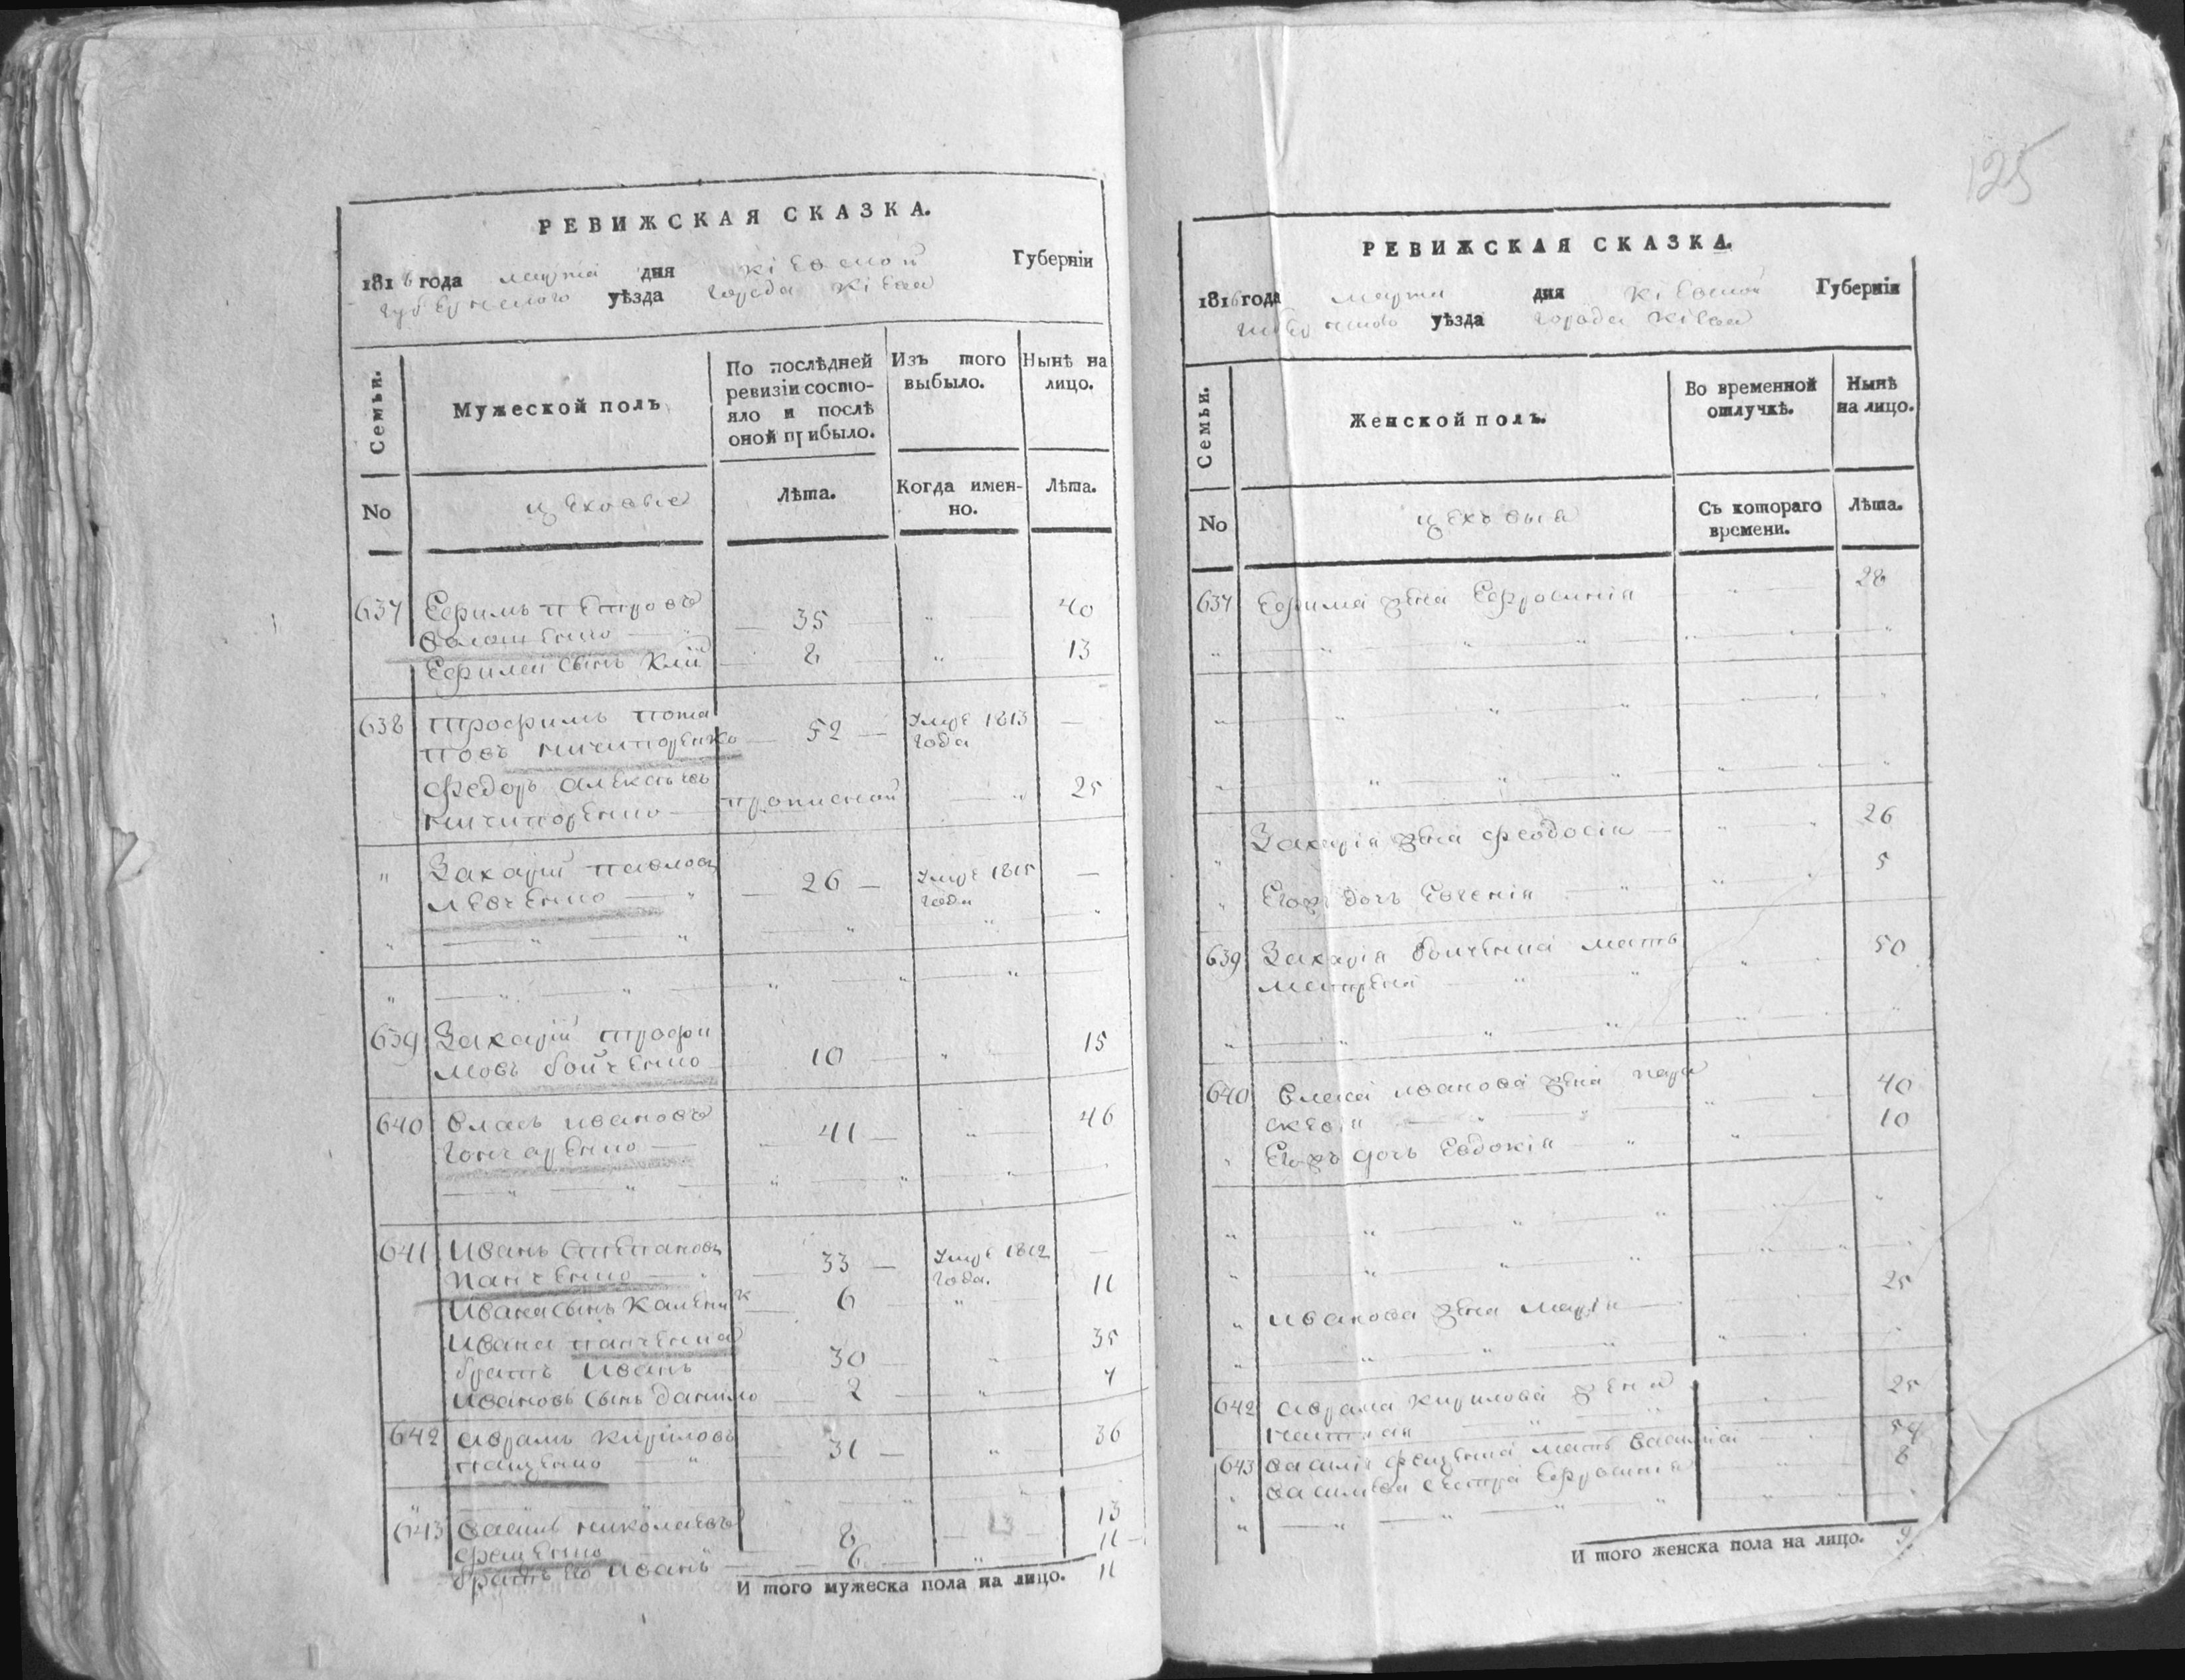 РЕВИЖСКАЯ СКАЗКА.
1816 года марта дня Кіевской Губерніи
Губернского уѣзда города Кіева
Семьи.
Мужеской полъ
По послѣдней ревизіи состояло и послѣ оной прибыло.
Изъ того выбыло.
Нынѣ на лицо.
No
цеховые
Лѣта.
Когда именно.
Лѣта.
637 Ефимъ Петровъ
Волошенко 35 40
Ефимей сынъ Клим 8 13
638 Трофимъ Пота
повъ Ничипоренко 52 Умре 1813 года
Федоръ Алексѣевъ
Ничипоренко прописной 25
Захарій Павловъ
Левченко 26 Умре 1815 года
639 Захарій Трофи
мовъ Бойченко 10 15
640 Власъ Ивановъ
Гончаренко 41 46
641 Иванъ Степановъ
Панченко 33 Умре 1812 года.
Ивана сынъ Каленик 6 11
Ивана Панченка
братъ Иванъ 30 35
Ивановъ сынъ Данило 2 7
642 Аврамъ Кириловъ
Пащенко 31 36
643 Василь Николаевъ
Фещенко 8 13
братъ его Иванъ 6 11
И того мужеска пола на лицо. 11
125
РЕВИЖСКАЯ СКАЗКА.
1816 года марта дня Кіевской Губерніи
Губернского уѣзда города Кіева
Семьи.
Женской полъ.
Во временной отлучкѣ.
Нынѣ на лицо.
No
цеховыя
Съ котораго времени.
Лѣта.
637 Ефима жена Ефросинія 28
Захарія жена Феодосія 26
Егожъ дочь Евгенія 5
639 Захарія Бойченка мать 50
Матрена
640 Власа Иванова жена Пара 40
скевія
Егожъ дочь Евдокія 10
Иванова жена Марія 25
642 Аврама Кирилова жена 25
Наталия
643 Василія Фещенка мать Василиса 54
Васильева сестра Ефросинія 8
И того женска пола на лицо. 9